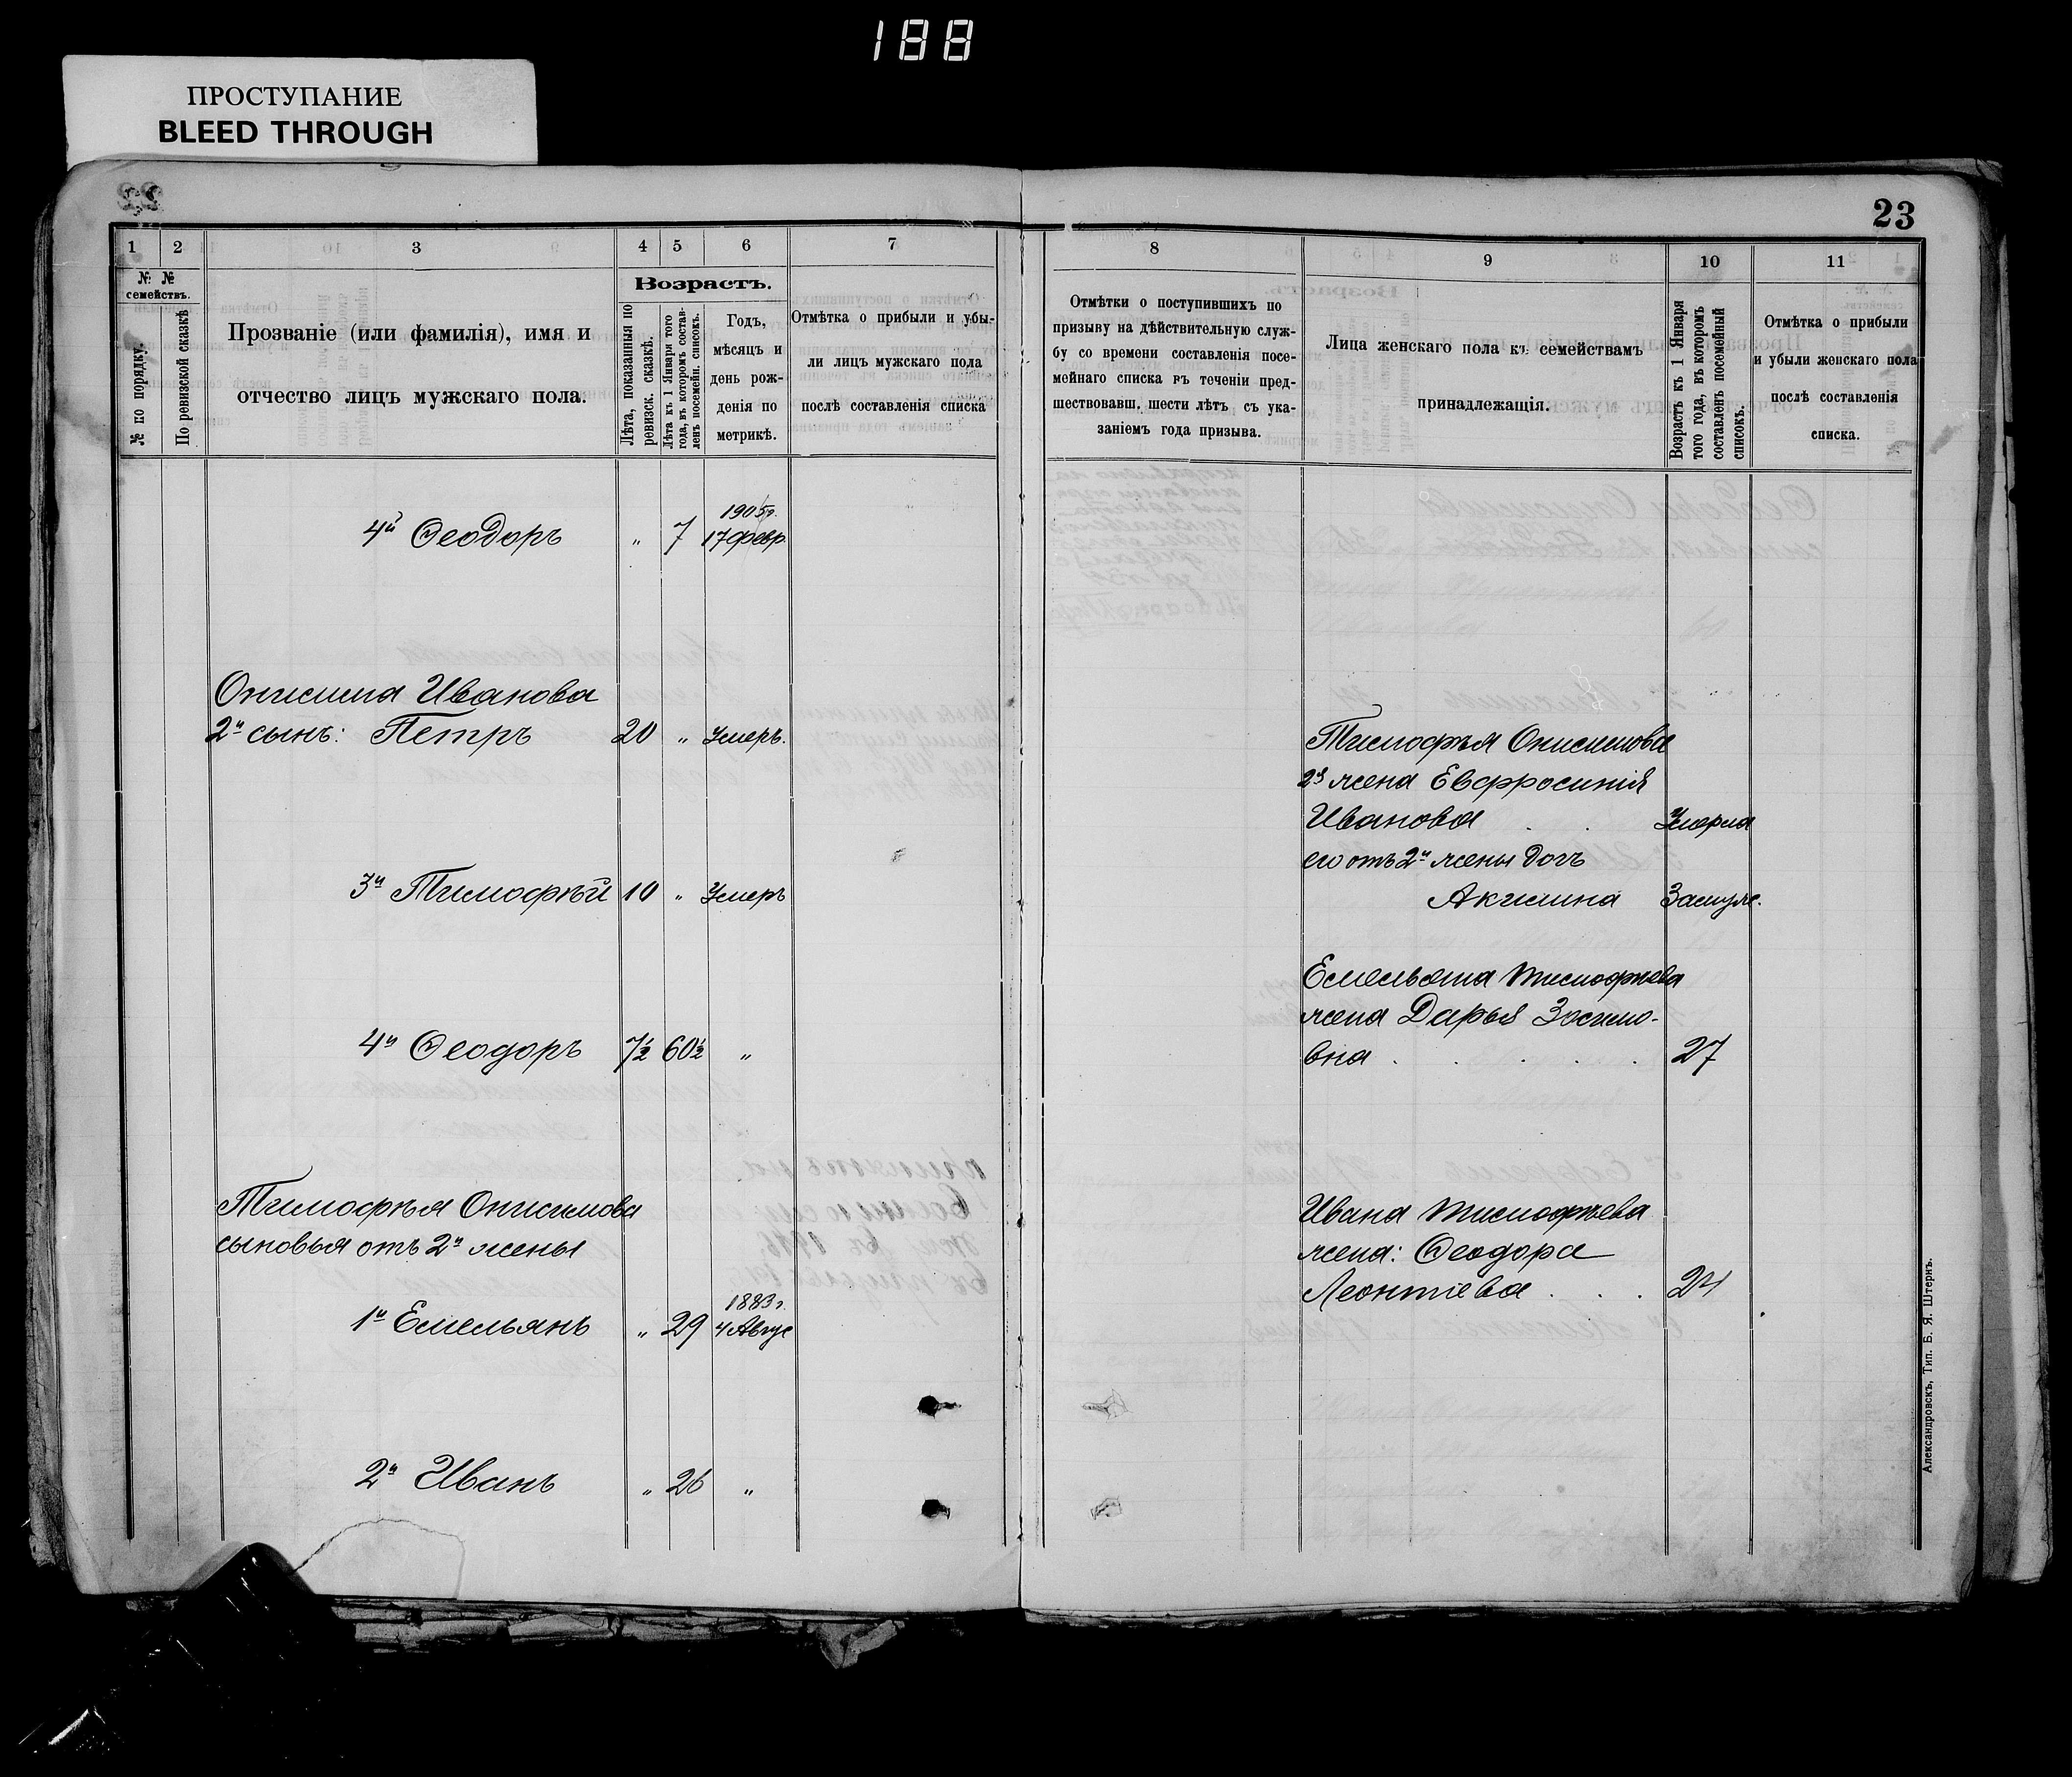 188
ПРОСТУПАНИЕ
BLEED THROUGH
23
1 2 3 4 5 6 7
№ № семействъ.
№ по порядку.
По ревизской сказкѣ
Прозваніе (или фамилія), имя и
отчество лицъ мужскаго пола.
Возрастъ.
Лѣта, показанныя по
ревизск. сказкѣ.
Лѣта къ 1 Января того
года, въ которомъ состав-
ленъ посемейн. списокъ.
Годъ,
мѣсяцъ и
день рож-
денія по
метрикѣ.
Отмѣтка о прибыли и убы-
ли лицъ мужскаго пола
послѣ составленія списка
1905г.
4й Ѳеодоръ " 7 17 февр
Онисима Иванова
2й сынъ: Петръ 20 " Умеръ.
3й Тимофѣй 10 " Умеръ
4й Ѳеодоръ 7½ 60½ "
Тимофѣя Онисимова
сыновья отъ 2й жены
1883г.
1й Емельянъ " 29 4 Авгус
2й Иванъ " 26 "
8 9 10 11
Отмѣтки о поступившихъ по
призыву на дѣйствительную служ-
бу со времени составленія посе-
мейнаго списка въ теченіи пред-
шествовавш. шести лѣтъ съ ука-
заніемъ года призыва.
Лица женскаго пола къ семействамъ
принадлежащія.
Возрастъ къ 1 Января
того года, въ которомъ
составленъ посемейный
списокъ.
Отмѣтка о прибыли
и убыли женскаго пола
послѣ составленія
списка.
Тимофѣя Онисимова
2я жена Евфросинія
Иванова . . Умерла
его отъ 2й жены дочь
Акилина Замуж.
Емельяна Тимофѣева
жена Дарья Зосимо-
вна . . . . . 27
Ивана Тимофѣева
жена: Ѳеодора
Леонтіева . . . 24
Александровскъ, Тип. Б. Я. Штернъ.